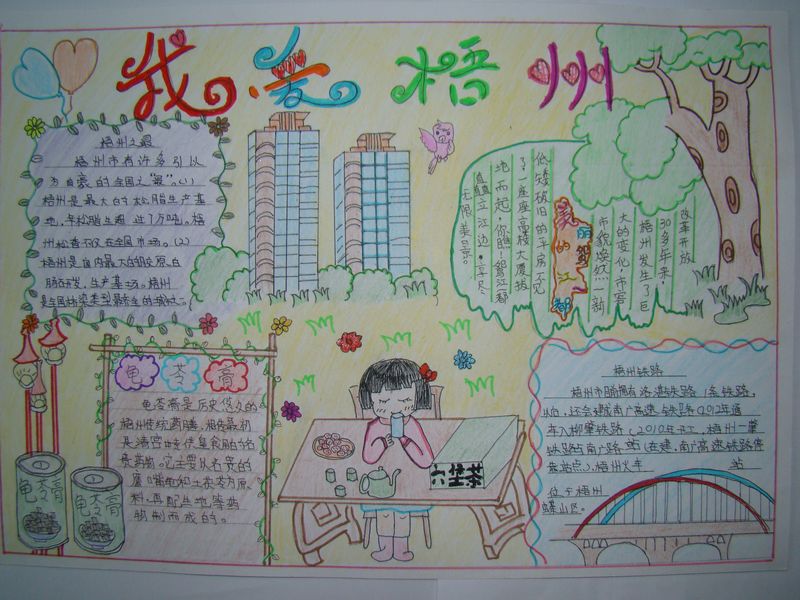 我爱梧州
梧州之最
梧州市有许多引以
为自豪的全国之“最”。(1)
梧州是最大的松脂生产基
地，年松脂生产超过了万吨。梧
州松香不仅在全国市场。(2)
梧州是国内最大的钛白
生产基地。梧州
是全国桥梁类型最齐全的城市
美丽的鸳江都
改革开放
30多年来，
梧州发生了巨
大的变化，市容
市貌焕然一新
低矮破旧的平房不见
了，一座座高楼大厦拔
地而起，你瞧！鸳江都
矗立江边，享尽
无限美景。
龟苓膏
龟苓膏是历史悠久的
梧州传统药膳，相传最初
是清宫中专供皇帝食用的名
贵药物。它主要以名贵的
鹰嘴龟和土茯苓为原
料，再配生地等药
物制而成的。
龟苓膏
龟苓膏
六堡茶
梧州铁路
梧州市目前拥有洛湛铁路1条铁路，
此外，还会建成南广高速铁路（2012年通
车）柳肇铁路（2010年开工，梧州—肇
铁路与南广路 站（在建，南广高速铁路停
靠站点）、梧州火车 站
位于梧州
蝶山区。